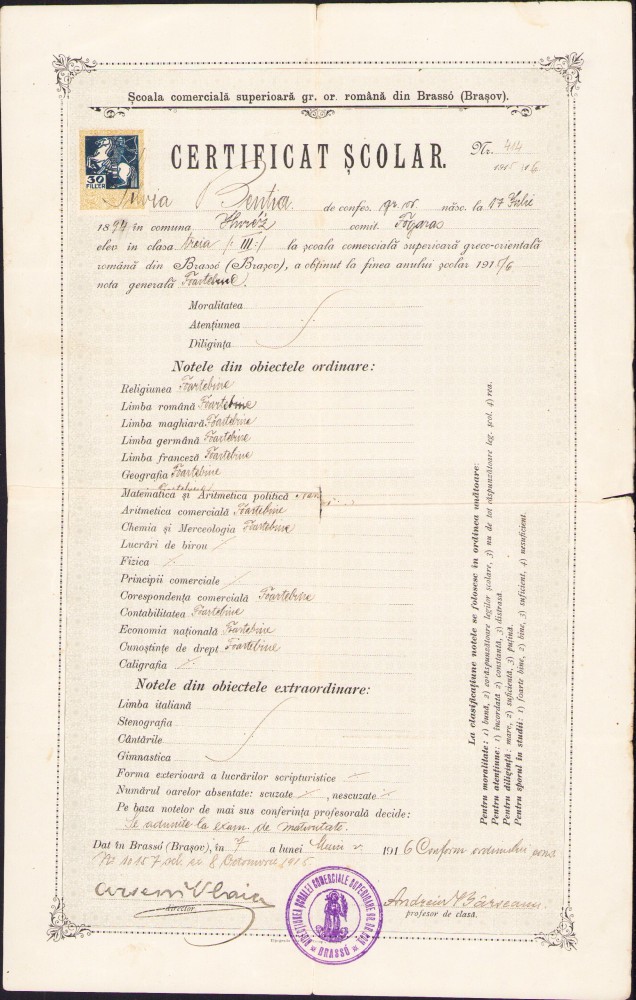 Școala comercială superioară gr. or. română din Brassó (Brașov).
CERTIFICAT ȘCOLAR.
Nr. 414
1915/16
30
FILLÉR
Bentia de confes. gr. or. născ. la 17 Iulie
1894 în comuna comit. Făgăraș
elev în clasa treia /: III :/ la școala comercială superioară greco-orientală
română din Brassó (Brașov), a obținut la finea anului școlar 1915/6
nota generală Foartebine.
Moralitatea
Atențiunea
Diligința
Notele din obiectele ordinare:
Religiunea Foartebine
Limba română Foartebine
Limba maghiară Foartebine
Limba germână Foartebine
Limba franceză Foartebine
Geografia Foartebine
Matematica și Aritmetica politică
Aritmetica comercială Foartebine
Chemia și Merceologia Foartebine
Lucrări de birou
Fizica
Principii comerciale
Corespondența comercială Foartebine
Contabilitatea Foartebine
Economia națională Foartebine
Cunoștințe de drept Foartebine
Caligrafia
Notele din obiectele extraordinare:
Limba italiană
Stenografia
Cântările
Gimnastica
Forma exterioară a lucrărilor scripturistice
Numărul oarelor absentate: scuzate , nescuzate
Pe baza notelor de mai sus conferința profesorală decide:
Se admite la exam. de maturitate.
Dat în Brassó (Brașov), în 7 a lunei 1916 Conform ordinului
director.
profesor de clasă.
DIRECȚIUNEA ȘCOALEI COMERCIALE SUPERIOARE GR. OR. ROM.
BRASSÓ
La clasificațiune notele se folosesc în ordinea următoare:
Pentru moralitate: 1) bună, 2) corăspunzătoare legilor școlare, 3) nu de tot răspunzătoare leg. școl. 4) rea.
Pentru atențiune: 1) încordată 2) constantă, 3) distrasă.
Pentru diligință: mare, 2) suficientă, 3) puțină.
Pentru sporul în studii: 1) foarte bine, 2) bine, 3) suficient, 4) nesuficient.